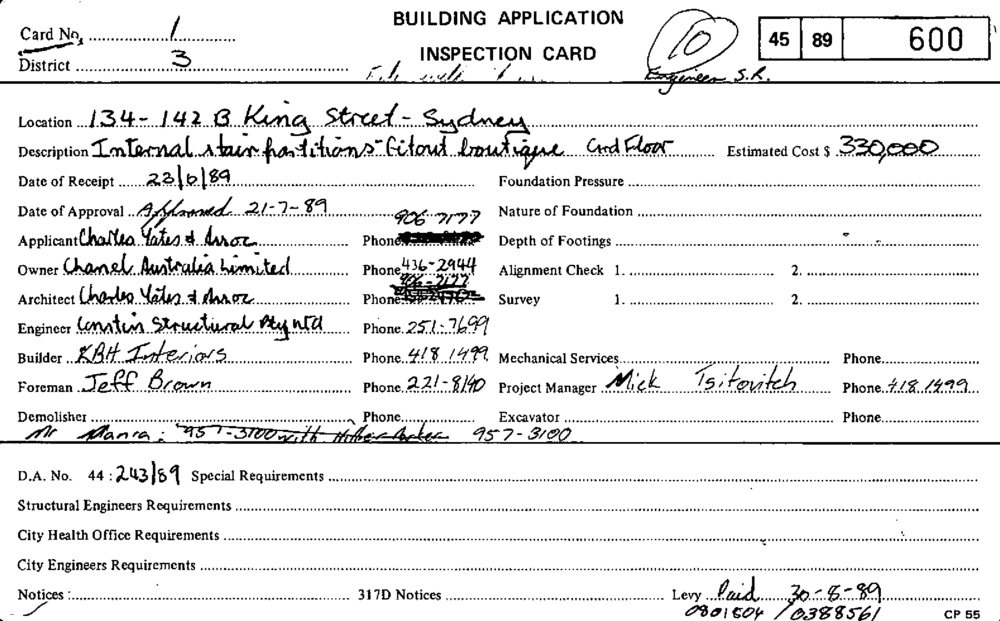 BUILDING APPLICATION
INSPECTION CARD
Card No. 1
District 3
10
Engineer S.R.
45 89 600
Location 134-142 B King Street - Sydney
Description Internal stair partitions - fitout boutique Grd Floor Estimated Cost $ 330,000
Date of Receipt 23/6/89 Foundation Pressure
Date of Approval Approved 21-7-89 Nature of Foundation
906 7177
Applicant Charles Yates & Assoc Phone Depth of Footings
Owner Chanel Australia Limited Phone 436-2944 Alignment Check 1. 2.
906-7177
Architect Charles Yates & Assoc Phone Survey 1. 2.
Engineer Structural Pty Ltd Phone. 251-7699
Builder KBH Interiors Phone. 418 1499 Mechanical Services Phone
Foreman Jeff Brown Phone. 221-8140 Project Manager Mick Tsitovitch Phone 418 1499
Demolisher Phone Excavator Phone
Mr : 957-3100 with 957-3100
D.A. No. 44 : 243/89 Special Requirements
Structural Engineers Requirements
City Health Office Requirements
City Engineers Requirements
Notices : 317D Notices Levy Paid 30-8-89
0801504 / 0388561 CP 55